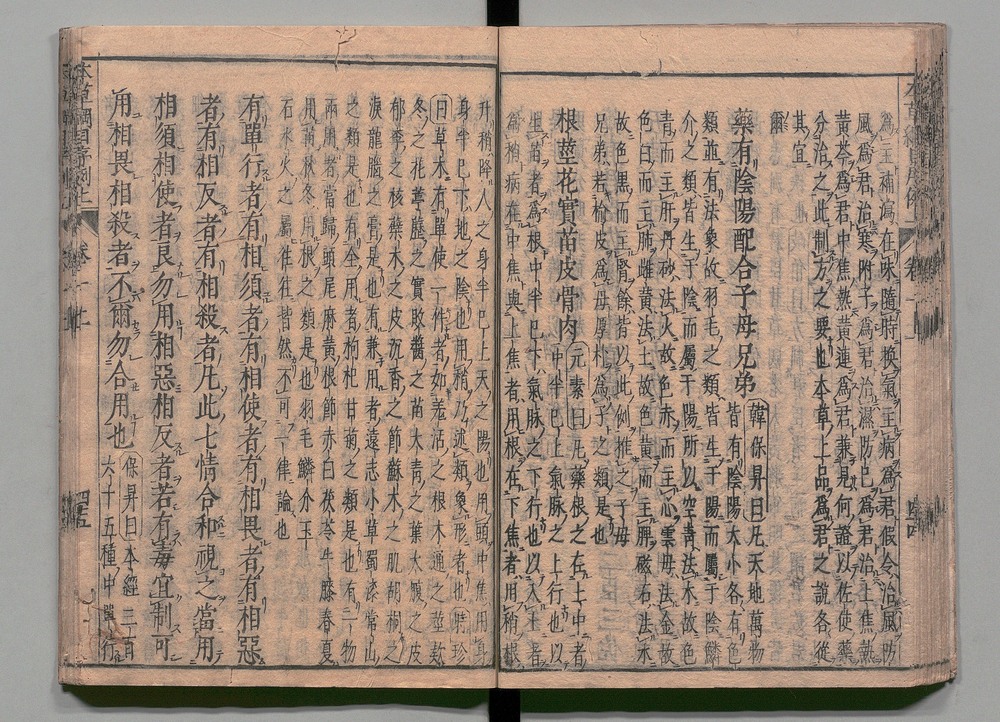 爲主補瀉在味隨時換氣主病爲君假令治風防
風爲君治寒附子爲君治濕防已爲君治上焦熱
黃芩爲君中焦熱黃連爲君兼見何證以佐使藥
分治之此制方之要也本草上品爲君之說各從
其宜
爾
藥有陰陽配合子母兄弟
韓保昇曰凡天地萬物
皆有陰陽大小各有色
類並有法象故羽毛之類皆生于陽而屬于陰鱗
介之類皆生于陰而屬于陽所以空青法木故色
青而主肝丹砂法火故色赤而主心雲母法金故
色白而主肺雌黃法土故色黃而主脾磁石法水
故色黑而主腎餘皆以此例推之子母
兄弟若榆皮爲母厚朴爲子之類是也
根莖花實苗皮骨肉
元素曰凡藥根之在上中者
中半巳上氣脉之上行也以
生苗者爲根中半巳下氣脉之下行也以入土
爲梢病在中焦與上焦者用根在下焦者用梢根
升梢降人之身半巳上天之陽也用頭中焦用身
身半巳下地之陰也用梢乃述類象形者也時珍
曰草木有單使一件者如羌活之根木通之莖款
冬之花葶藶之實敗醬之苗大青之葉大腹之皮
郁李之核蘗木之皮沉香之節蘇木之肌胡桐之
淚龍腦之膏是也有兼用者遠志小草蜀漆常山
之類是也有全用者枸杞甘菊之類是也有一物
兩用者當歸頭尾麻黃根節赤白茯苓牛膝春夏
用苗秋冬用根之類是也羽毛鱗介玉
石水火之屬徃徃皆然不可一律論也
有單行者有相須者有相使者有相畏者有相惡
者有相反者有相殺者凡此七情合和視之當用
相須相使者良勿用相惡相反者若有毒宜制可
用相畏相殺者不爾勿合用也
保昇曰本經三百
六十五種中單行
本草綱目序例上
卷一上
四五